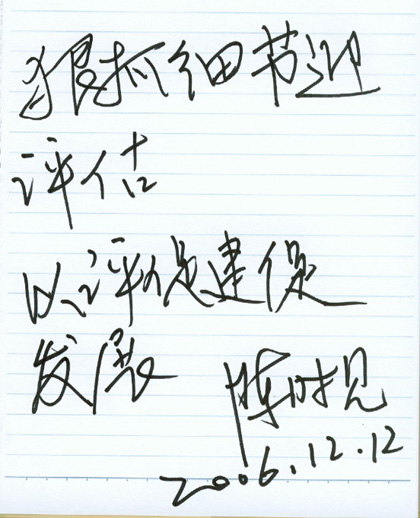 狠抓细节迎
评估
以评促建促
发展
陈时见
2006.12.12